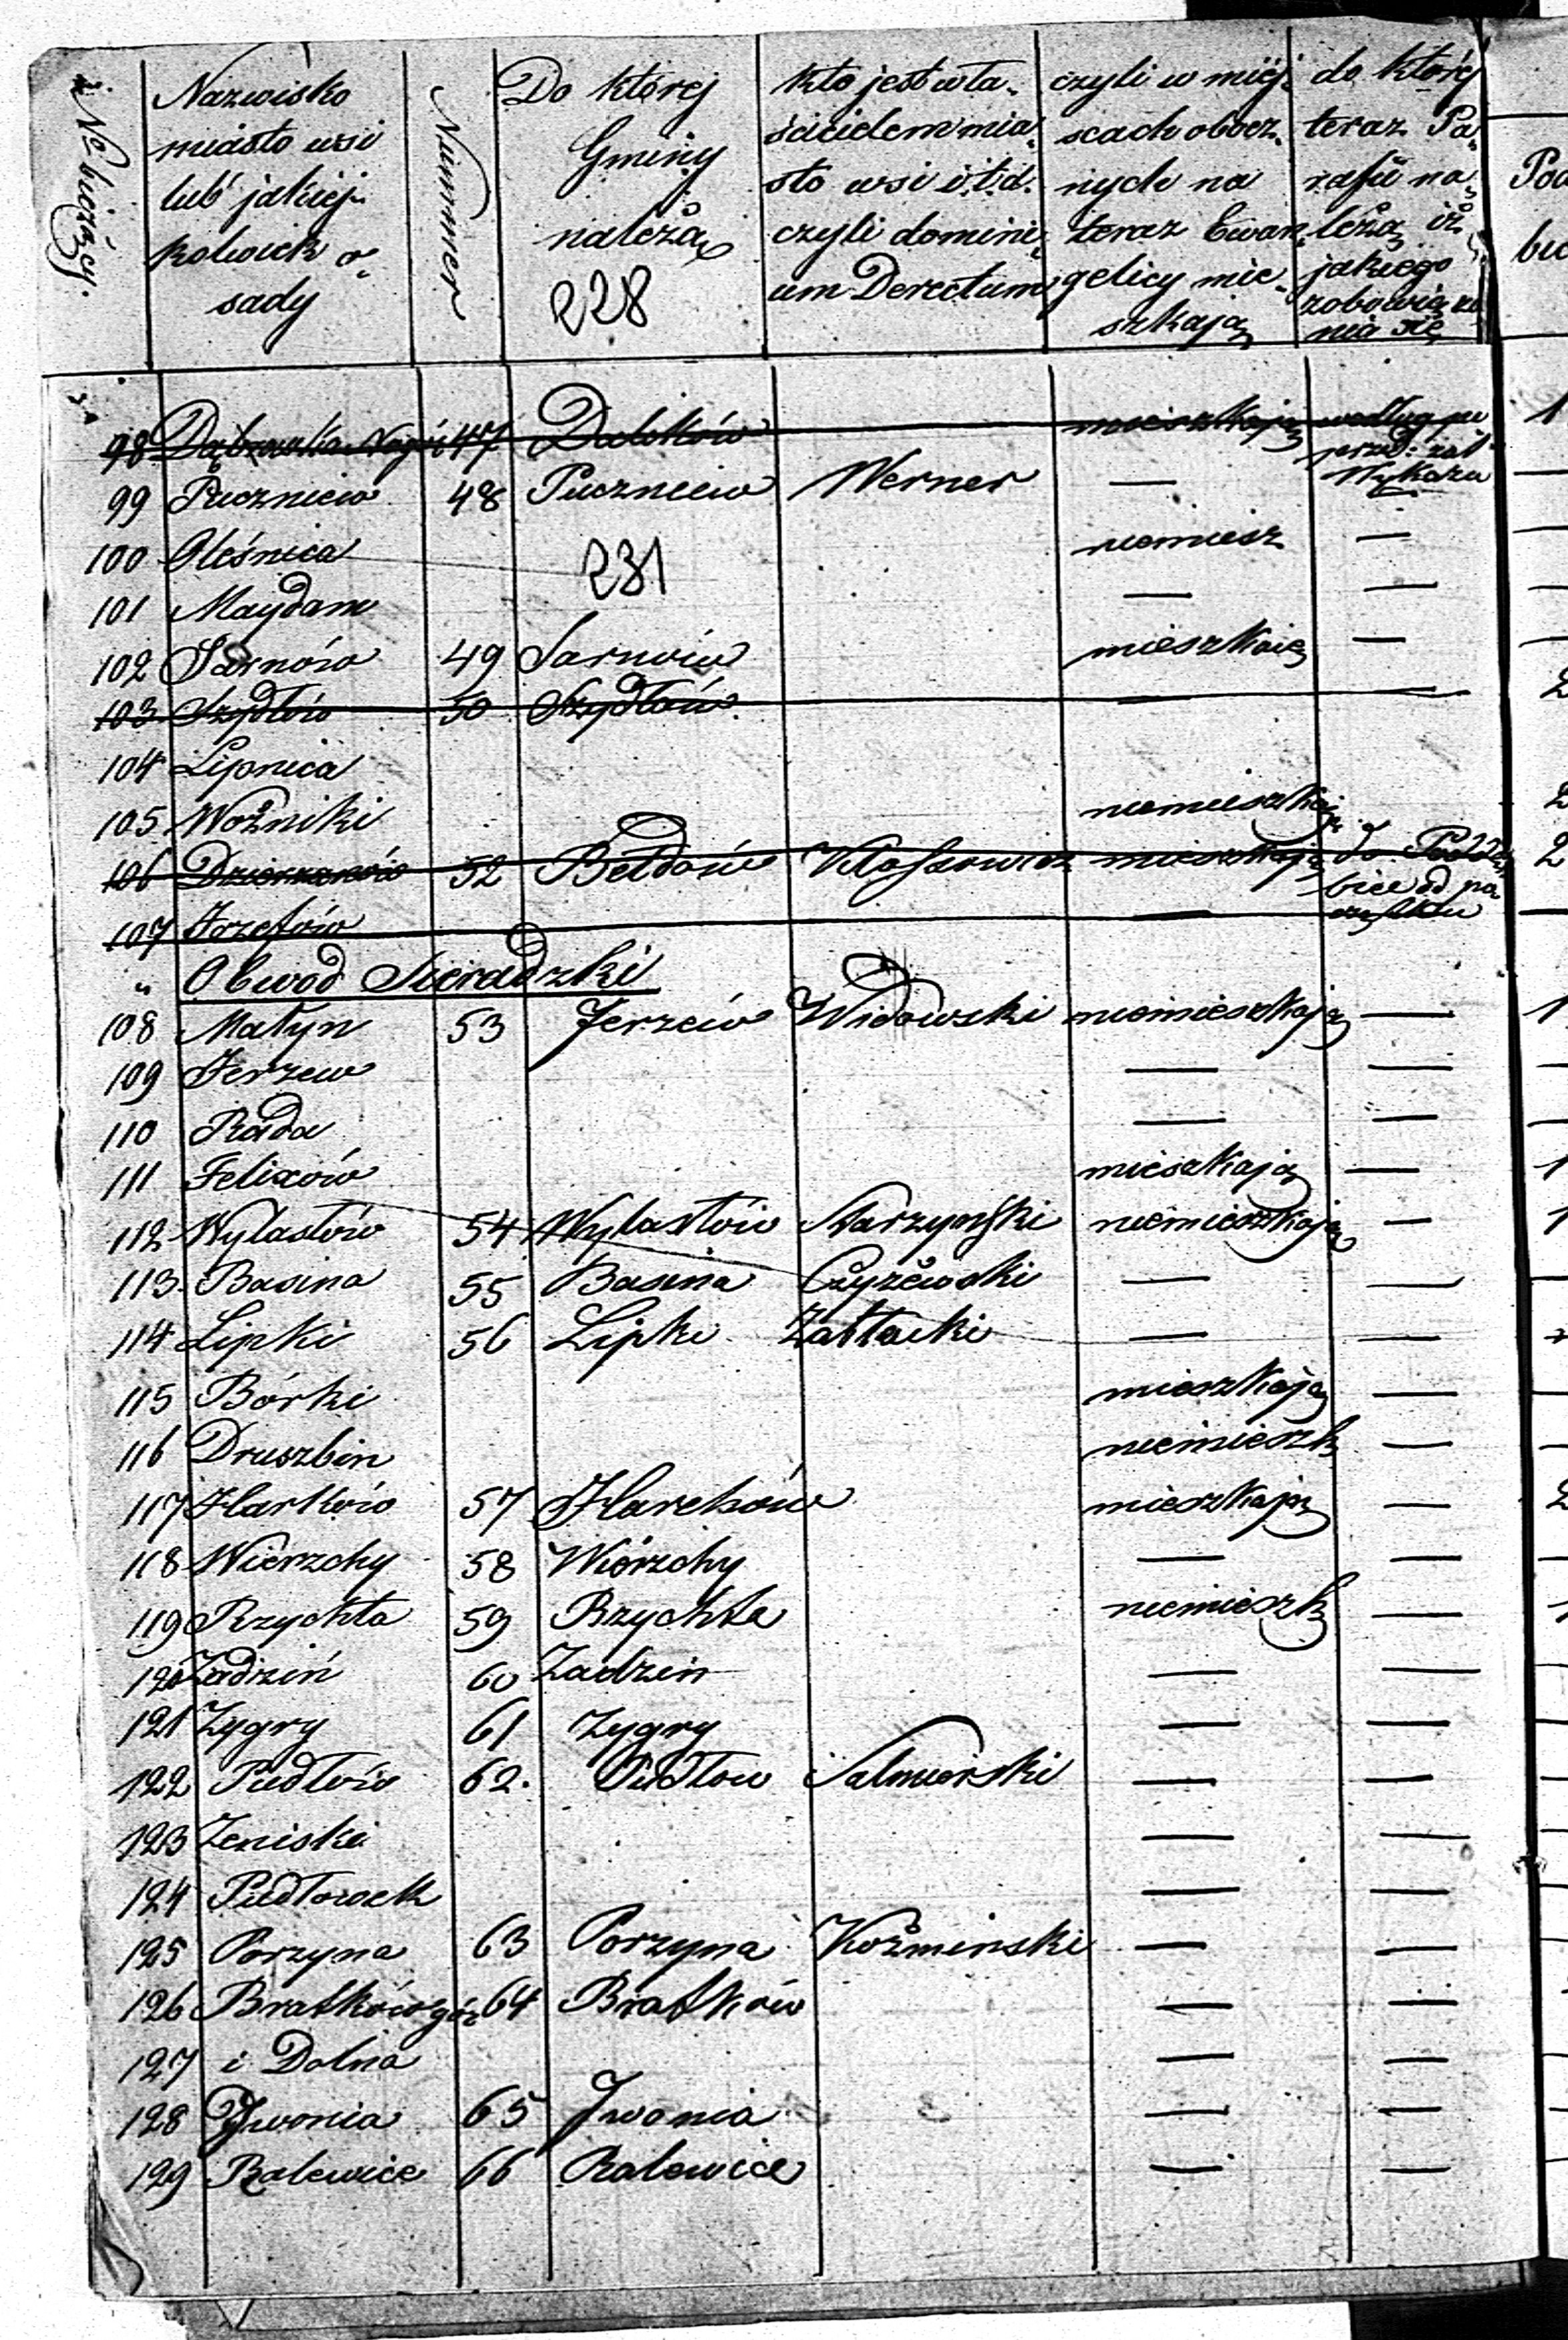 No bieżący.
Nazwisko
miasto wsi
lub jakiej-
kolwiek o-
sady
Nummer
Do której
Gminy
należą
228
kto jest wła-
ścicielem mia-
sto wsi i.t.d.
czyli domini-
um Derectum
czyli w miej-
scach obocz-
nych na
teraz Ewan-
gelicy mie-
szkają
do której
teraz Pa-
rafii na-
leżą iż
jakiego
zobowiąza
nia się
98 Dąbrowka Nagór 47 Dalików mieszkają według po
przed: zał
Wykazu
99 Puczniew 48 Puczniew Werner —
100 Oleśnica niemiesz —
231
101 Maydam — —
102 Sarnów 49 Sarnów mieszkaią —
103 Szydłów 50 Szydłów — —
104 Lipnica
105 Woźniki niemieszkają
106 Dzierzanów 52 Bełdów Kłosowicz mieszkają do Podde
bice od po
czątku
107 Jozefów —
" Obwod Sieradzki
108 Małyn 53 Jerzew Widawski niemieszkają — 1
109 Jerzew —
110 Ruda — —
111 Felixów mieszkają — 1
112 Wylasłów 54 Wylastów Starzynski niemieszkają — 1
113 Basina 55 Basina Czyżewski — —
114 Lipki 56 Lipki Załtacki — —
115 Bórki mieszkają —
116 Druszbin niemieszk —
117 Harków 57 Harchów mieszkają — 2
118 Wierzchy 58 Wiérzchy — —
119 Rzychta 59 Rzychta niemieszk — 1
120 Zadzin 60 Zadzin — —
121 Zygry 61 Zygry — —
122 Pudłów 62. Pudłow Salmorski — —
123 Zeniski — —
124 Pudłowek — —
125 Porzyna 63 Porzyna Koźminski — —
126 Bratków gór 64 Bratków — —
127 i Dolna — —
128 Jwonia 65 Jwonia — —
129 Balewice 66 Ralewice — —